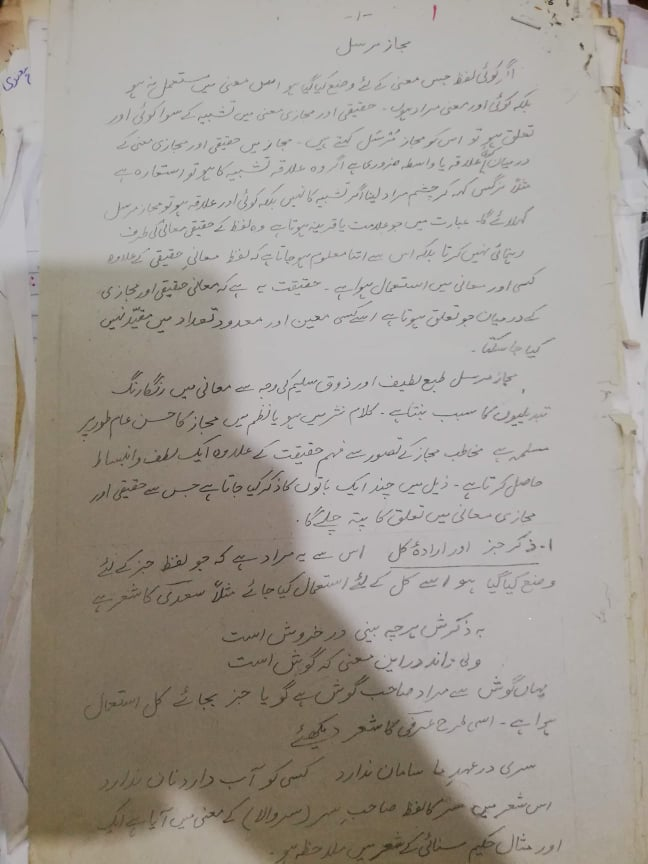 -۱-
۱
مجاز مرسل
اگر کوئی لفظ جس معنی کے لئے وضع کیا گیا ہو اس معنی میں مستعمل نہ ہو
بلکہ کوئی اور معنی مراد ہوں۔ حقیقی اور مجازی معنی میں تشبیہ کے سوا کوئی اور
تعلق ہو تو اس کو مجاز مُرسَل کہتے ہیں۔ مجاز میں حقیقی اور مجازی معنی کے
درمیان علاقہ یا واسطہ ضروری ہے اگر وہ علاقہ تشبیہ کا ہو تو استعارہ ہے
مثلاً نرگس کہہ کر چشم مراد لینا اگر تشبیہ کا نہیں بلکہ کوئی اور علاقہ ہو تو مجاز مرسل
کہلائے گا۔ عبارت میں جو علامت یا قرینہ ہوتا ہے وہ لفظ کے حقیقی معانی کی طرف
رہنمائی نہیں کرتا بلکہ اس سے اتنا معلوم ہو جاتا ہے کہ لفظ معانی حقیقی کے علاوہ
کسی اور معانی میں استعمال ہوا ہے۔ حقیقت یہ ہے کہ معانی حقیقی اور مجازی
کے درمیان جو تعلق ہوتا ہے اسے کسی معین اور معدود تعداد میں مقیّد نہیں
کیا جا سکتا۔
مجاز مرسل طبع لطیف اور ذوق سلیم کی وجہ سے معانی میں رنگارنگ
تبدیلیوں کا سبب بنتا ہے۔ کلام نثر میں ہو یا نظم میں مجاز کا حسن عام طور پر
مسلمہ ہے مخاطب مجاز کے تصور سے فہم حقیقت کے علاوہ ایک لطف و انبساط
حاصل کرتا ہے۔ ذیل میں چند ایک باتوں کا ذکر کیا جاتا ہے جس سے حقیقی اور
مجازی معانی میں تعلق کا پتہ چلے گا۔
۱۔ ذکر جز اور ارادۂ کل اس سے یہ مراد ہے کہ جو لفظ جز کے لئے
وضع کیا گیا ہو اسے کل کے لئے استعمال کیا جائے مثلاً سعدی کا شعر ہے
بہ ذکرش ہرچہ بینی در خروش است
ولی داند دراین معنی کہ گوش است
یہاں گوش سے مراد صاحب گوش ہے گویا جز بجائے کل استعمال
ہوا ہے۔ اسی طرح عرفی کا شعر دیکھئے
سری در عہد ما سامان ندارد کسی کو آب دارد نان ندارد
اس شعر میں سر کا لفظ صاحبِ سر (سر والا) کے معنی میں آیا ہے ایک
اور مثال حکیم سنائی کے شعر میں ملاحظہ ہو۔